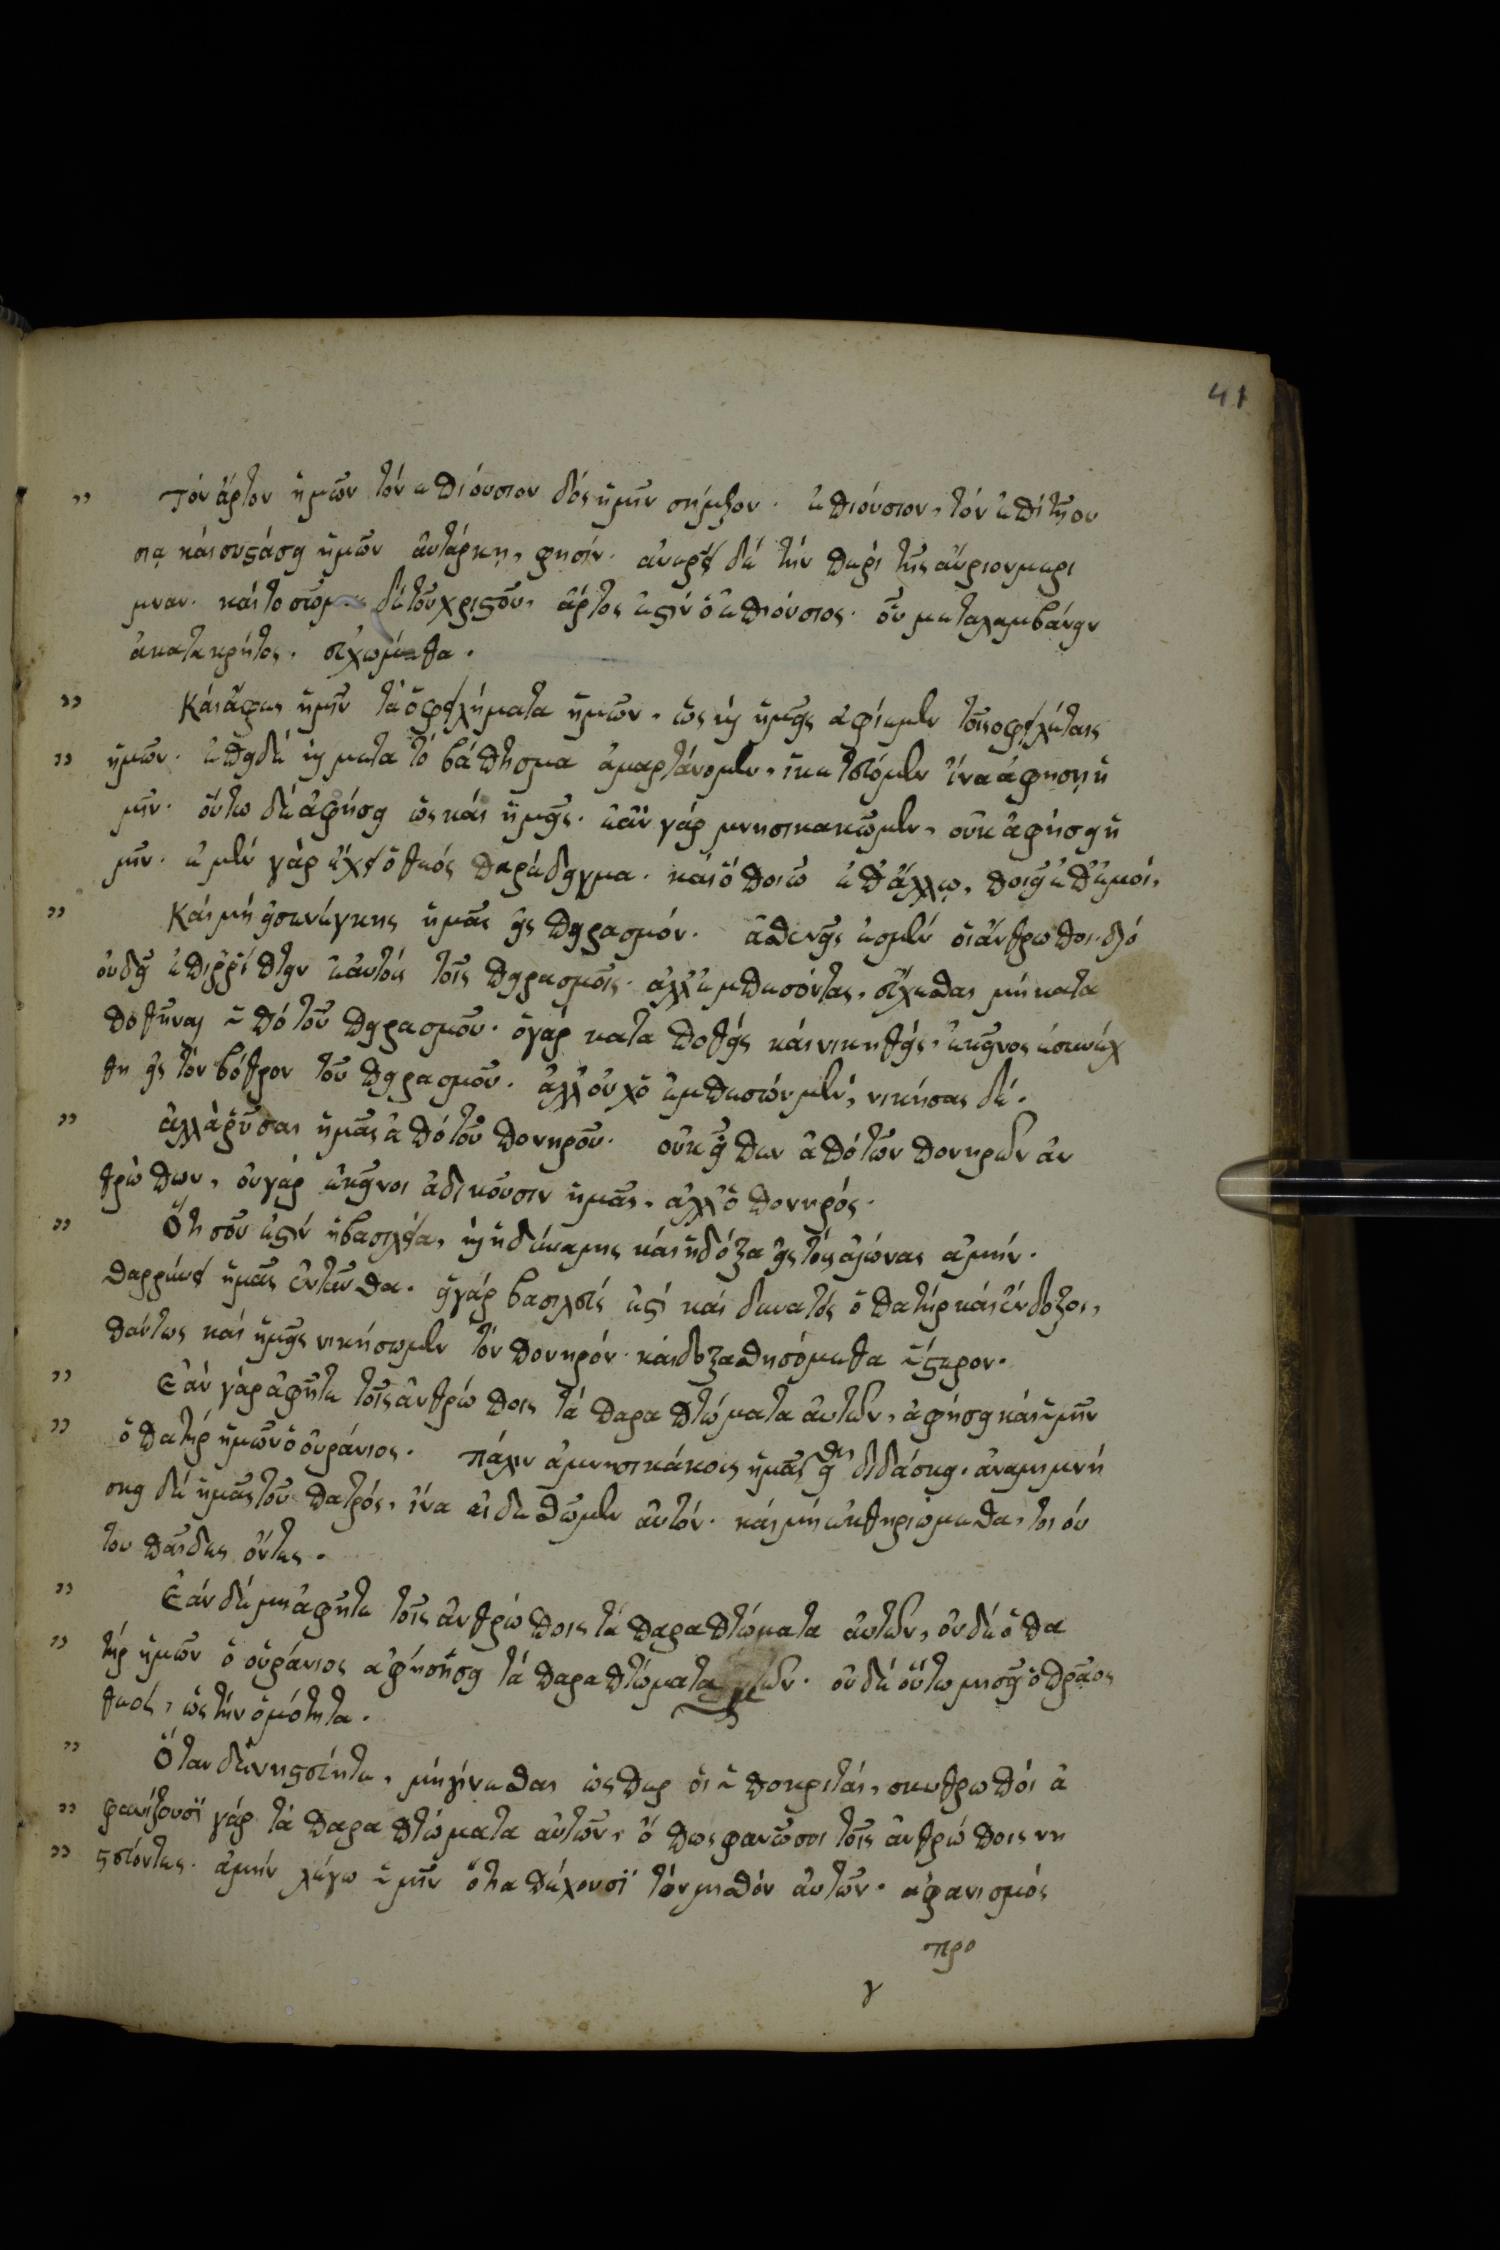 41
" Τόν ἄρτον ἡμῶν τόν ἐπιούσιον δός ἡμῖν σήμερον. ἐπιούσιον, τόν ἐπί τῆ οὐ
σίᾳ καί συστάσει ἡμῶν αὐτάρκη, φησίν. ἀναιρεῖ δέ τήν περί τῆς αὔριον μερί
μναν. καί το σῶμα δέ τοῦ χριστοῦ, ἄρτος ἐστίν ὁ ἐπιούσιος. οὗ μεταλαμβάνειν
ἀκατακρίτος. εὐχώμεθα.
" Καί ἄφες ἡμῖν τά ὀφειλήματα ἡμῶν, ὡς καί ἡμεῖς ἀφίεμεν τοῖς οφειλέταις
" ἡμῶν. ἐπειδέ καί μετά τό βάπτησμα ἁμαρτάνομεν, ἱκετεύομεν ἵνα ἀφησῃ ἡ
μῖν. οὕτω δέ ἀφήσει ὡς καί ἡμεῖς. ἐάν γάρ μνησικακῶμεν, οὐκ ἀφήσει ἡ
μῖν. ἐμέν γάρ ἔχει ὁ θεός παράδειγμα. καί ὅ ποιῶ ἐπ' ἄλλῳ, ποιεῖ ἐπ' ἐμοί,
" Καί μή εἰσενέγκης ἡμᾶς εἰς πειρασμόν. ἀσθενεῖς ἐσμέν οἱ ἄνθρωποι. διό
οὐ δεῖ ἐπιρρίπτειν ἑαυτούς τοῖς πειρασμοῖς. ἀλλ' ἐμπεσόντας, εὔχεσθαι μή κατα
ποθῆναι ὑπό τοῦ πειρασμοῦ. ὁ γάρ καταποθείς καί νικηθείς, ἐκεῖνος εἰσενέχ
θη εἰς τόν βόθρον τοῦ πειρασμοῦ. ἀλλ' οὐχ ὁ ἐμπεσών μέν, νικήσας δέ.
" ἀλλὰ ῥῦσαι ἡμᾶς ἀπό τοῦ πονηροῦ. οὐκ εἶπεν ἀπό τῶν πονηρῶν ἀν
θρώπων, οὐ γάρ ἐκεῖνοι ἀδικοῦσιν ἡμᾶς, ἀλλ' ὁ πονηρός.
" Ὅτι σοῦ ἐστίν ἡ βασιλεία, καί ἡ δύναμης καί ἡ δόξα εἰς τούς αἰώνας ἀμήν.
παρρύνει ἡμᾶς ἐνταῦθα. εἰ γάρ βασιλεύς ἐστί καί δυνατός ὁ πατήρ καί ἔνδοξος,
πάντως καί ἡμεῖς νικήσωμεν τόν πονηρόν. καί δοξασθησόμεθα ὕστερον.
" Ἐάν γάρ ἀφῆτε τοῖς ἀνθρώποις τά παραπτώματα αὐτῶν, ἀφήσει καί ὑμῖν
" ὁ πατήρ ἡμῶν ὁ οὐράνιος. Πάλιν ἀμνησικάκοις ἡμᾶς εἶναι διδάσκει. ἀναμιμνή
σκει δέ ἡμᾶς τοῦ πατρός, ἵνα αἰδεσθῶμεν αὐτόν. καί μή ἐκθηριώμεθα, τοιού
του παῖδες ὄντες.
" Ἐάν δέ μη ἀφῆτε τοῖς ἀνθρώποις τά παραπτώματα αὐτῶν, οὐδέ ὁ πα
" τήρ ἡμῶν ὁ οὐράνιος ἀφήσει τά παραπτώματα ὑμῶν. οὐδέ οὕτω μισεῖ ὁ πρᾶος
θεός, ὡς τήν ὠμότητα.
" Ὅταν δέ νηστεύητε, μή γίνεσθαι ὥσπερ οἱ ὑποκριταί, σκυθρωποί ἀ
" φανίζουσι γάρ τά παραπτώματα αὐτῶν, ὅπως φανῶσι τοῖς ἀνθρώποις νη
" στεύοντες. ἀμήν λέγω ὑμῖν ὅτι ἀπέχουσι τόν μισθόν αὐτῶν. ἀφανισμός
προ
γ